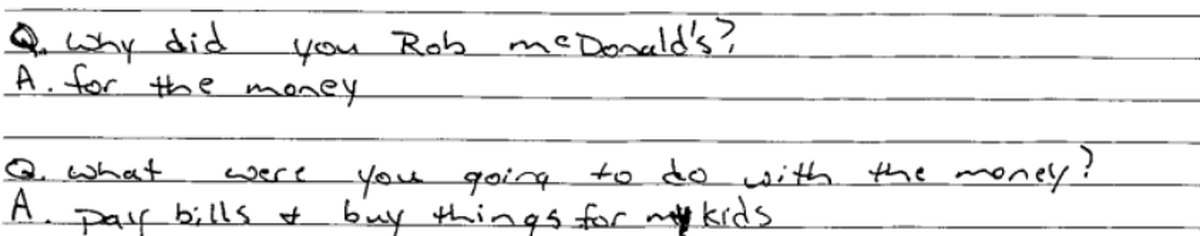 Q. Why did you Rob mcDonald's?
A. for the money
Q. what were you going to do with the money?
A. pay bills + buy things for my kids